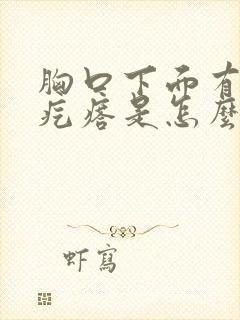 胸口下面有
疙瘩是怎麼
虾寫